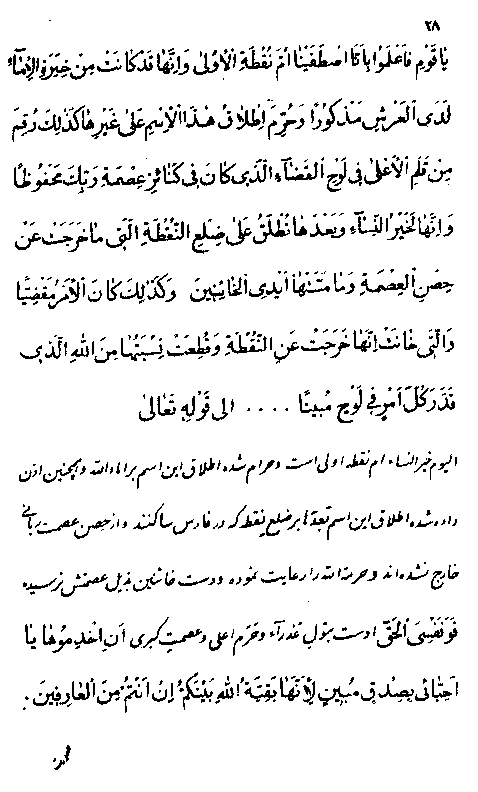 ٢٨
يا قَوْمِ فَاعْلَمُوا بِاَنَّا اصْطَفَيْنا اُمَّ نُقْطَةِ الْاُولىٰ وَاِنَّها قَدْ كانَتْ مِنْ خِيَرَةِ الْاِماءِ
لَدَى الْعَرْشِ مَذْكُورًا وَحُرِّمَ اِطْلاقُ هٰذَا الْاِسْمِ عَلىٰ غَيْرِها كَذٰلِكَ رُقِمَ
مِنْ قَلَمِ الْاَعْلىٰ فِى لَوْحِ الْقَضآءِ الَّذِى كانَ فِى كَنائِزِ عِصْمَةِ رَبِّكَ مَحْفُوظًا
وَاِنَّها لَخَيْرُ النِّسآءِ وَبَعْدَها تُطْلَقُ عَلىٰ ضِلْعِ النُّقْطَةِ الَّتِى ما خَرَجَتْ عَنْ
حِصْنِ الْعِصْمَةِ وَما مَسَّتْها اَيْدِى الْخائِنِينَ وَكَذٰلِكَ كانَ الْاَمْرُ مَقْضِيًّا
وَالَّتِى خانَتْ اِنَّها خَرَجَتْ عَنِ النُّقْطَةِ وَقُطِعَتْ نِسْبَتُها مِنَ اللهِ الَّذِى
قَدَّرَ كُلَّ اَمْرٍ فِى لَوْحٍ مُبِينًا .... الى قَوْلِهِ تَعَالىٰ
اليوم خير النساء ام نقطه اولى است و حرام شده اطلاق اين اسم بر اماء الله و همچنين اذن
داده شده اطلاق اين اسم بعدها بر ضلع نقطه كه در فارس ساكنند و از حصن عصمت ربانى
خارج نشده اند و حرمة الله را رعايت نموده و دست خائنين بذيل عصمتش نرسيده
فَوَنَفْسِىَ الْحَقّ اوست بتول عذراء و حرم اعلى و عصمت كبرى اَنِ اخْدِمُوها يا
اَحِبّائى بِصِدْقٍ مُبِينٍ لِاَنَّها بَقِيَّةُ اللهِ بَيْنَكُمْ اِنْ اَنْتُمْ مِنَ الْعارِفِينَ .